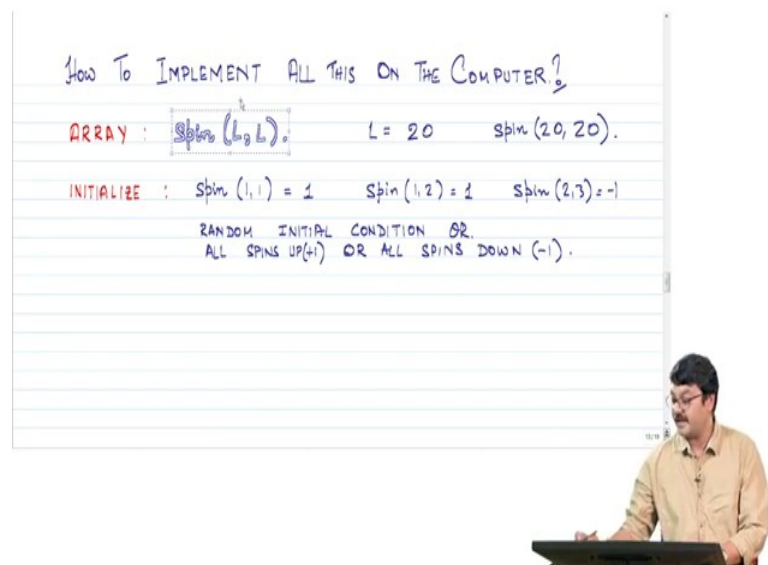 HOW TO IMPLEMENT ALL THIS ON THE COMPUTER?
ARRAY : Spin (L, L). L = 20 spin (20, 20).
INITIALIZE : spin (1, 1) = 1 spin (1, 2) = 1 spin (2, 3) = -1
RANDOM INITIAL CONDITION OR.
ALL SPINS UP(+1) OR ALL SPINS DOWN (-1).